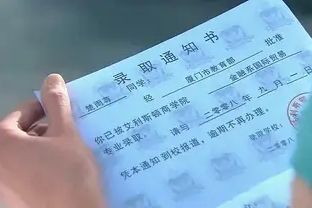 录取通知书
楚雨荨 同学：
经 厦门市教育部 批准
你已被艾利斯顿商学院 金融系国际贸易
专业录取。请与 二零零八 年 九 月 二 日
凭本通知到校报道，逾期不再办理。
录取学校：
二零零八